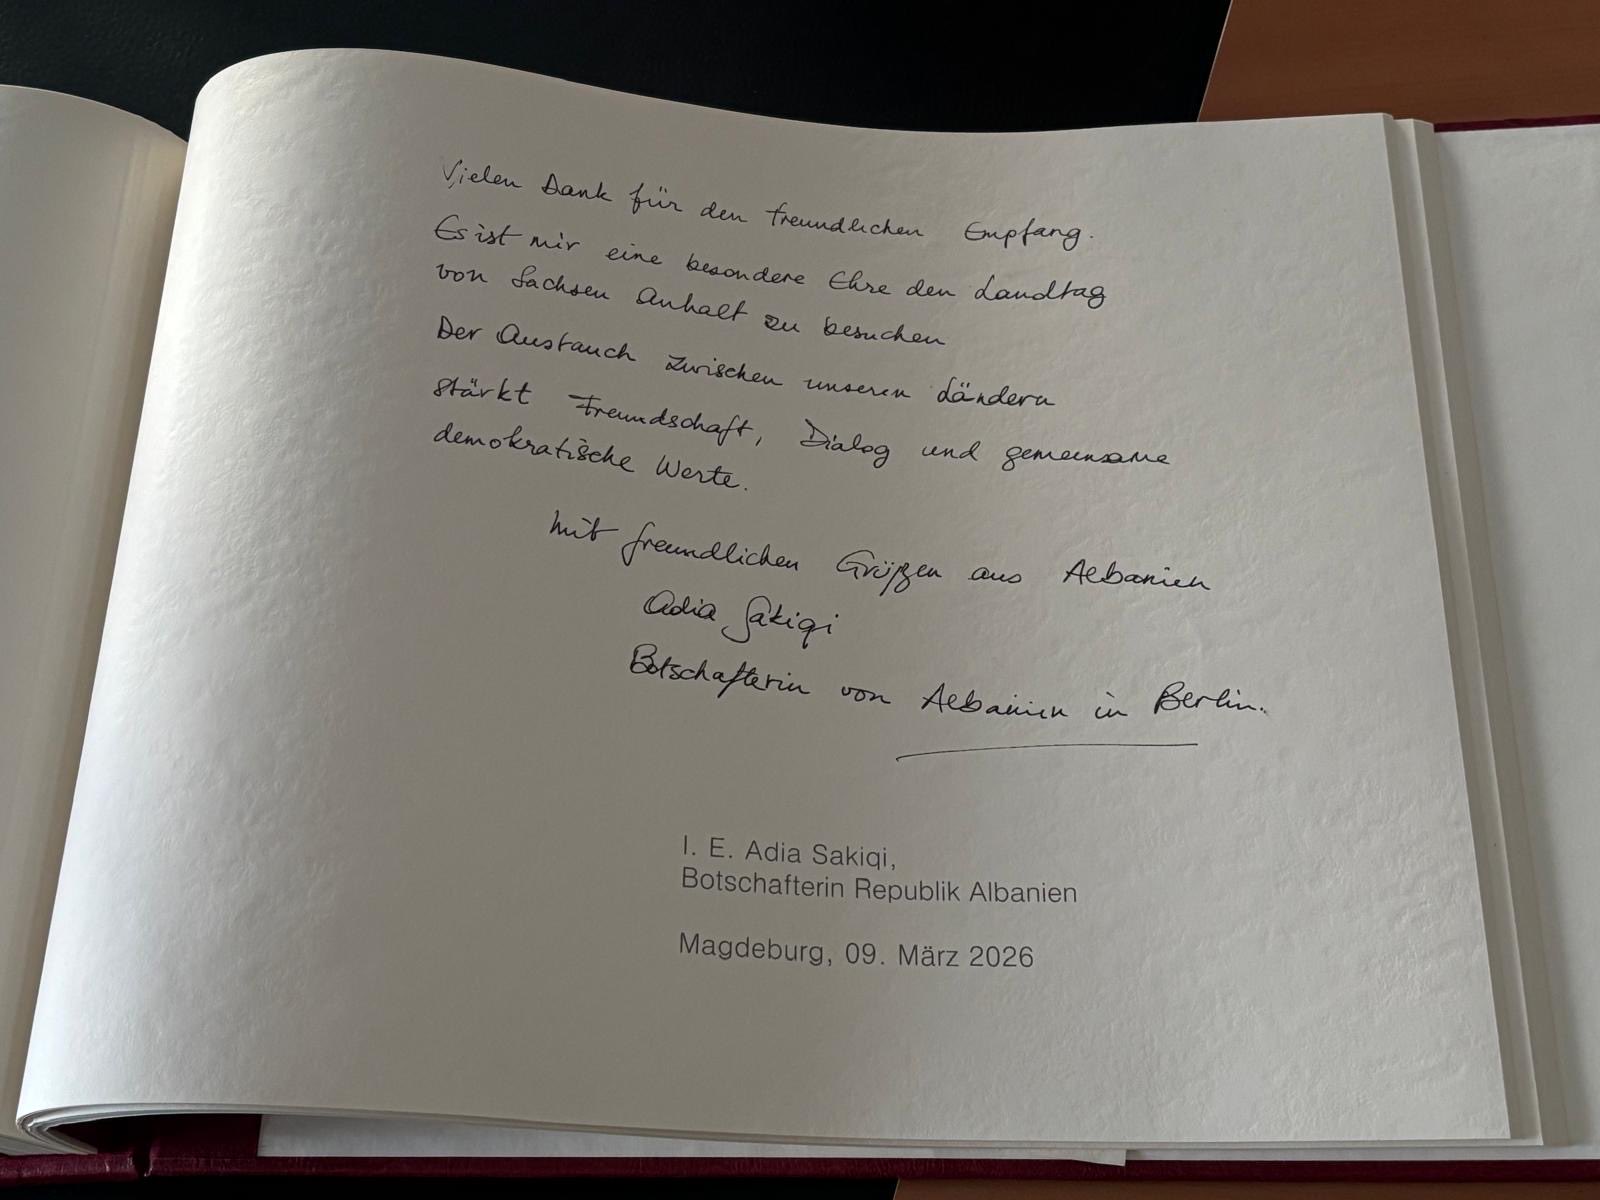 Vielen Dank für den freundlichen Empfang.
Es ist mir eine besondere Ehre den Landtag
von Sachsen Anhalt zu besuchen
Der Austauch zwischen unseren Ländern
stärkt Freundschaft, Dialog und gemeinsame
demokratische Werte.
Mit freundlichen Grüßen aus Albanien
Adia Sakiqi
Botschafterin von Albanien in Berlin.
I. E. Adia Sakiqi,
Botschafterin Republik Albanien
Magdeburg, 09. März 2026